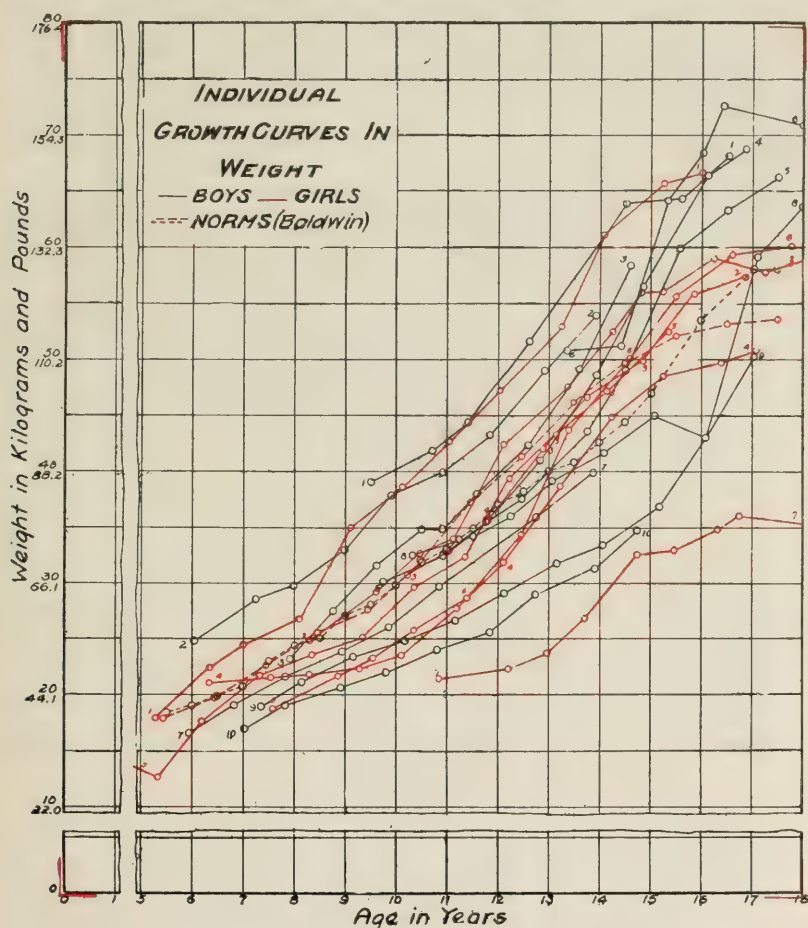 INDIVIDUAL
GROWTH CURVES IN
WEIGHT
— BOYS — GIRLS
---- NORMS (Baldwin)
Weight in Kilograms and Pounds
80
176.4
70
154.3
60
132.3
50
110.2
40
88.2
30
66.1
20
44.1
10
22.0
0
0 1 5 6 7 8 9 10 11 12 13 14 15 16 17 18
Age in Years